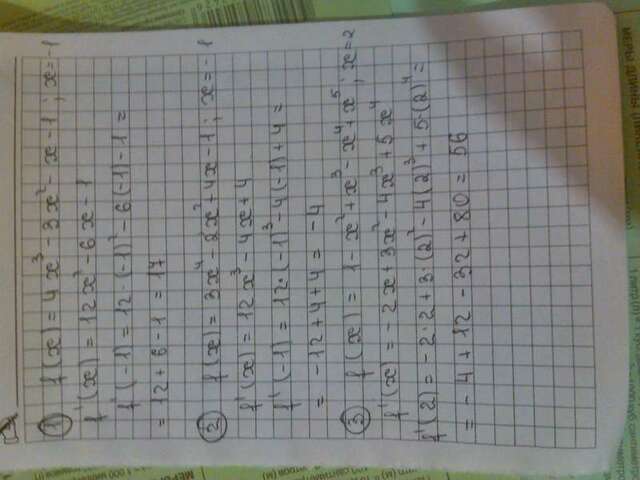 ① f(x) = 4x³ - 3x² - x - 1 ; x = -1
f'(x) = 12x² - 6x - 1
f'(-1) = 12·(-1)² - 6(-1) - 1 =
= 12 + 6 - 1 = 17
② f(x) = 3x⁴ - 2x² + 4x - 1 ; x = -1
f'(x) = 12x³ - 4x + 4
f'(-1) = 12·(-1)³ - 4(-1) + 4 =
= -12 + 4 + 4 = -4
③ f(x) = 1 - x² + x³ - x⁴ + x⁵ ; x = 2
f'(x) = -2x + 3x² - 4x³ + 5x⁴
f'(2) = -2·2 + 3·(2)² - 4(2)³ + 5·(2)⁴ =
= -4 + 12 - 32 + 80 = 56